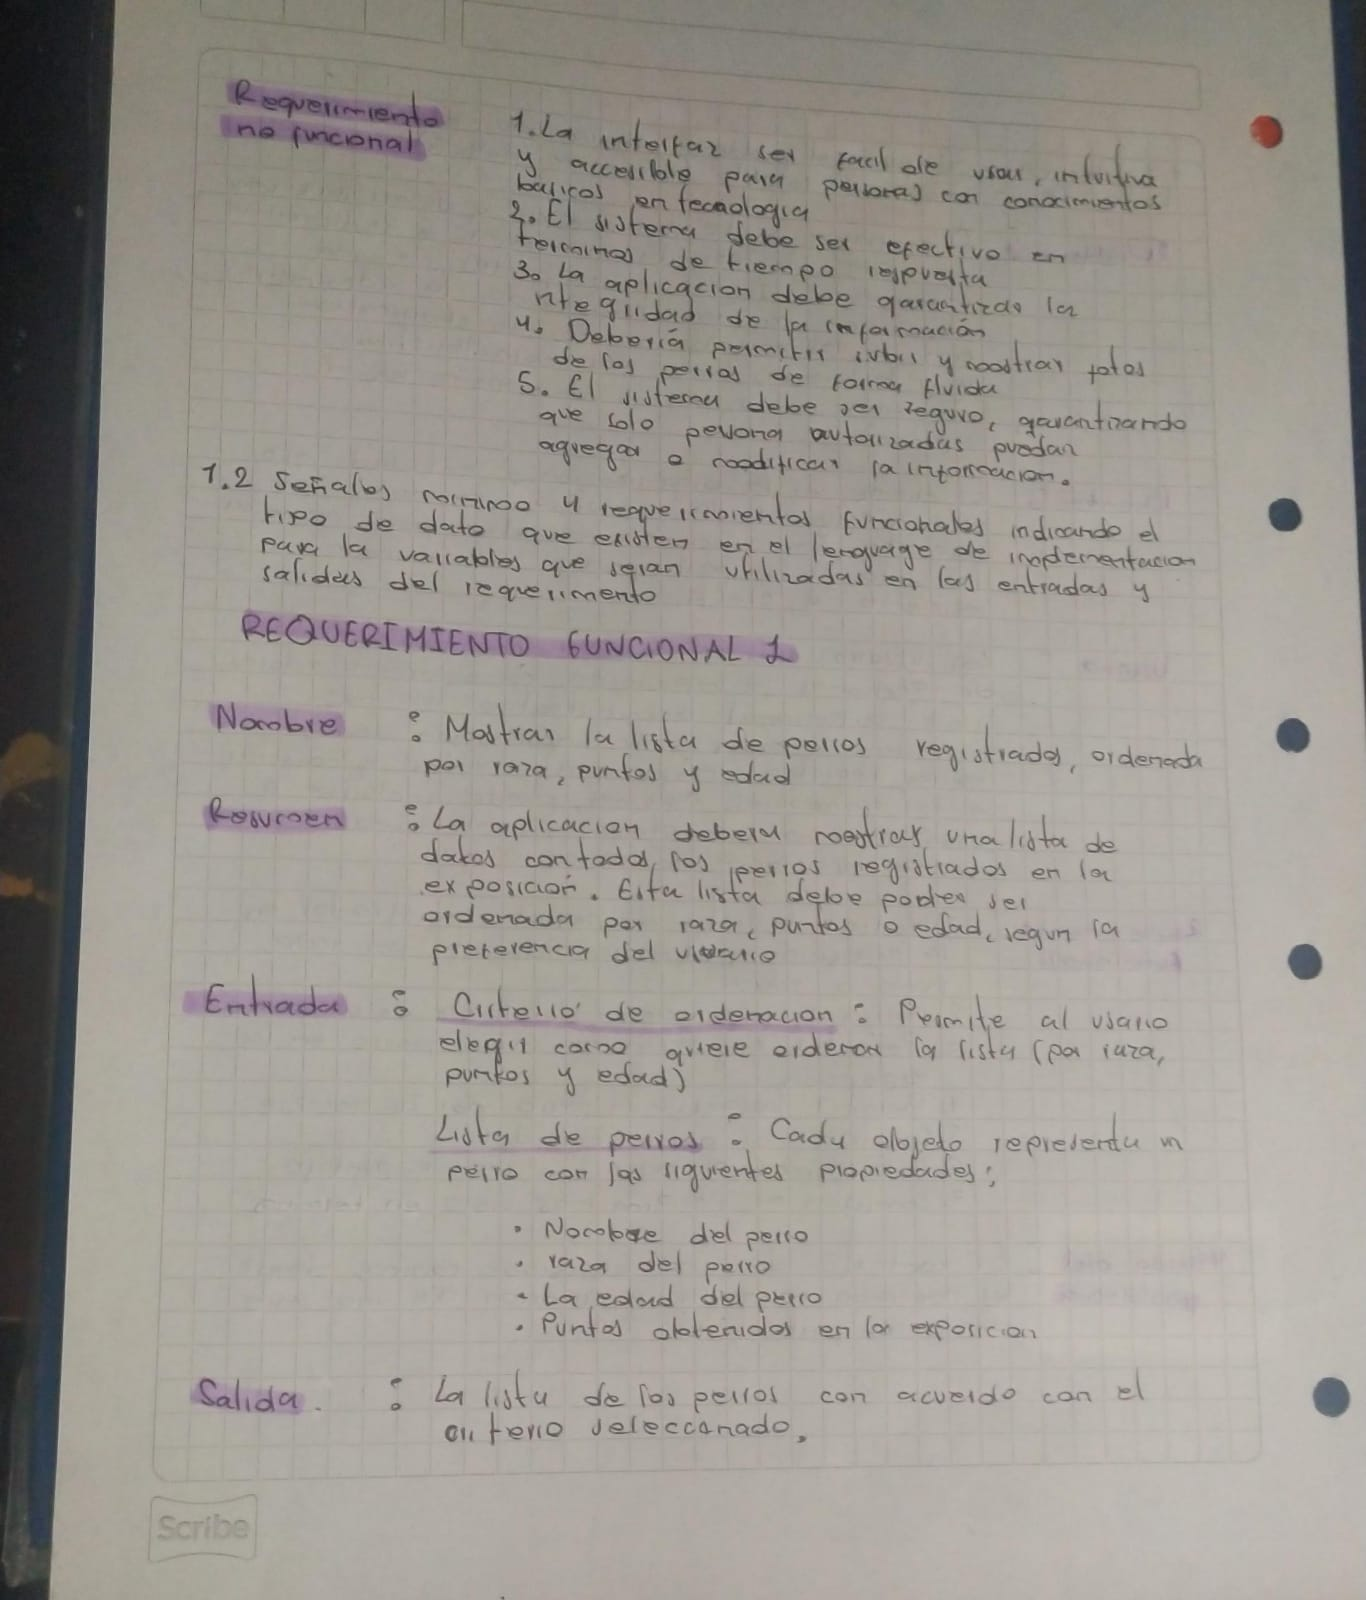 Requerimiento
no funcional
1. La interfaz ser facil de usar, intuitiva
y accesible para personas con conocimientos
basicos en tecnologia
2. El sistema debe ser efectivo en
terminos de tiempo respuesta
3. La aplicacion debe garantizas la
ntegridad de la información
4. Debería permitir subir y mostrar fotos
de los perros de forma fluida
5. El sistema debe ser seguro, garantizando
que solo persona autorizadas puedan
agregar o modificar la informacion.
1.2 Señales minimo 4 requerimientos funcionales indicando el
tipo de dato que existen en el lenguage de implementacion
para la variables que seran utilizadas en las entradas y
salidas del requerimento
REQUERIMIENTO FUNCIONAL 1
Nombre : Mostrar la lista de perros registrados, ordenada
por raza, puntos y edad
Resumen : La aplicacion debera mostrar una lista de
datos con todos los perros registrados en la
exposición. Esta lista debe poder ser
ordenada por raza, puntos o edad, segun la
preferencia del usuario
Entrada : Criterio de ordenacion : Permite al usario
elegir como quiere ordenar la lista (por raza,
puntos y edad)
Lista de perros : Cada objeto representa un
perro con las siguientes propiedades;
• Nombre del perro
• raza del perro
• La edad del perro
• Puntos obtenidos en la exposicion
Salida. : La lista de los perros con acuerdo con el
criterio seleccionado.
Scribe